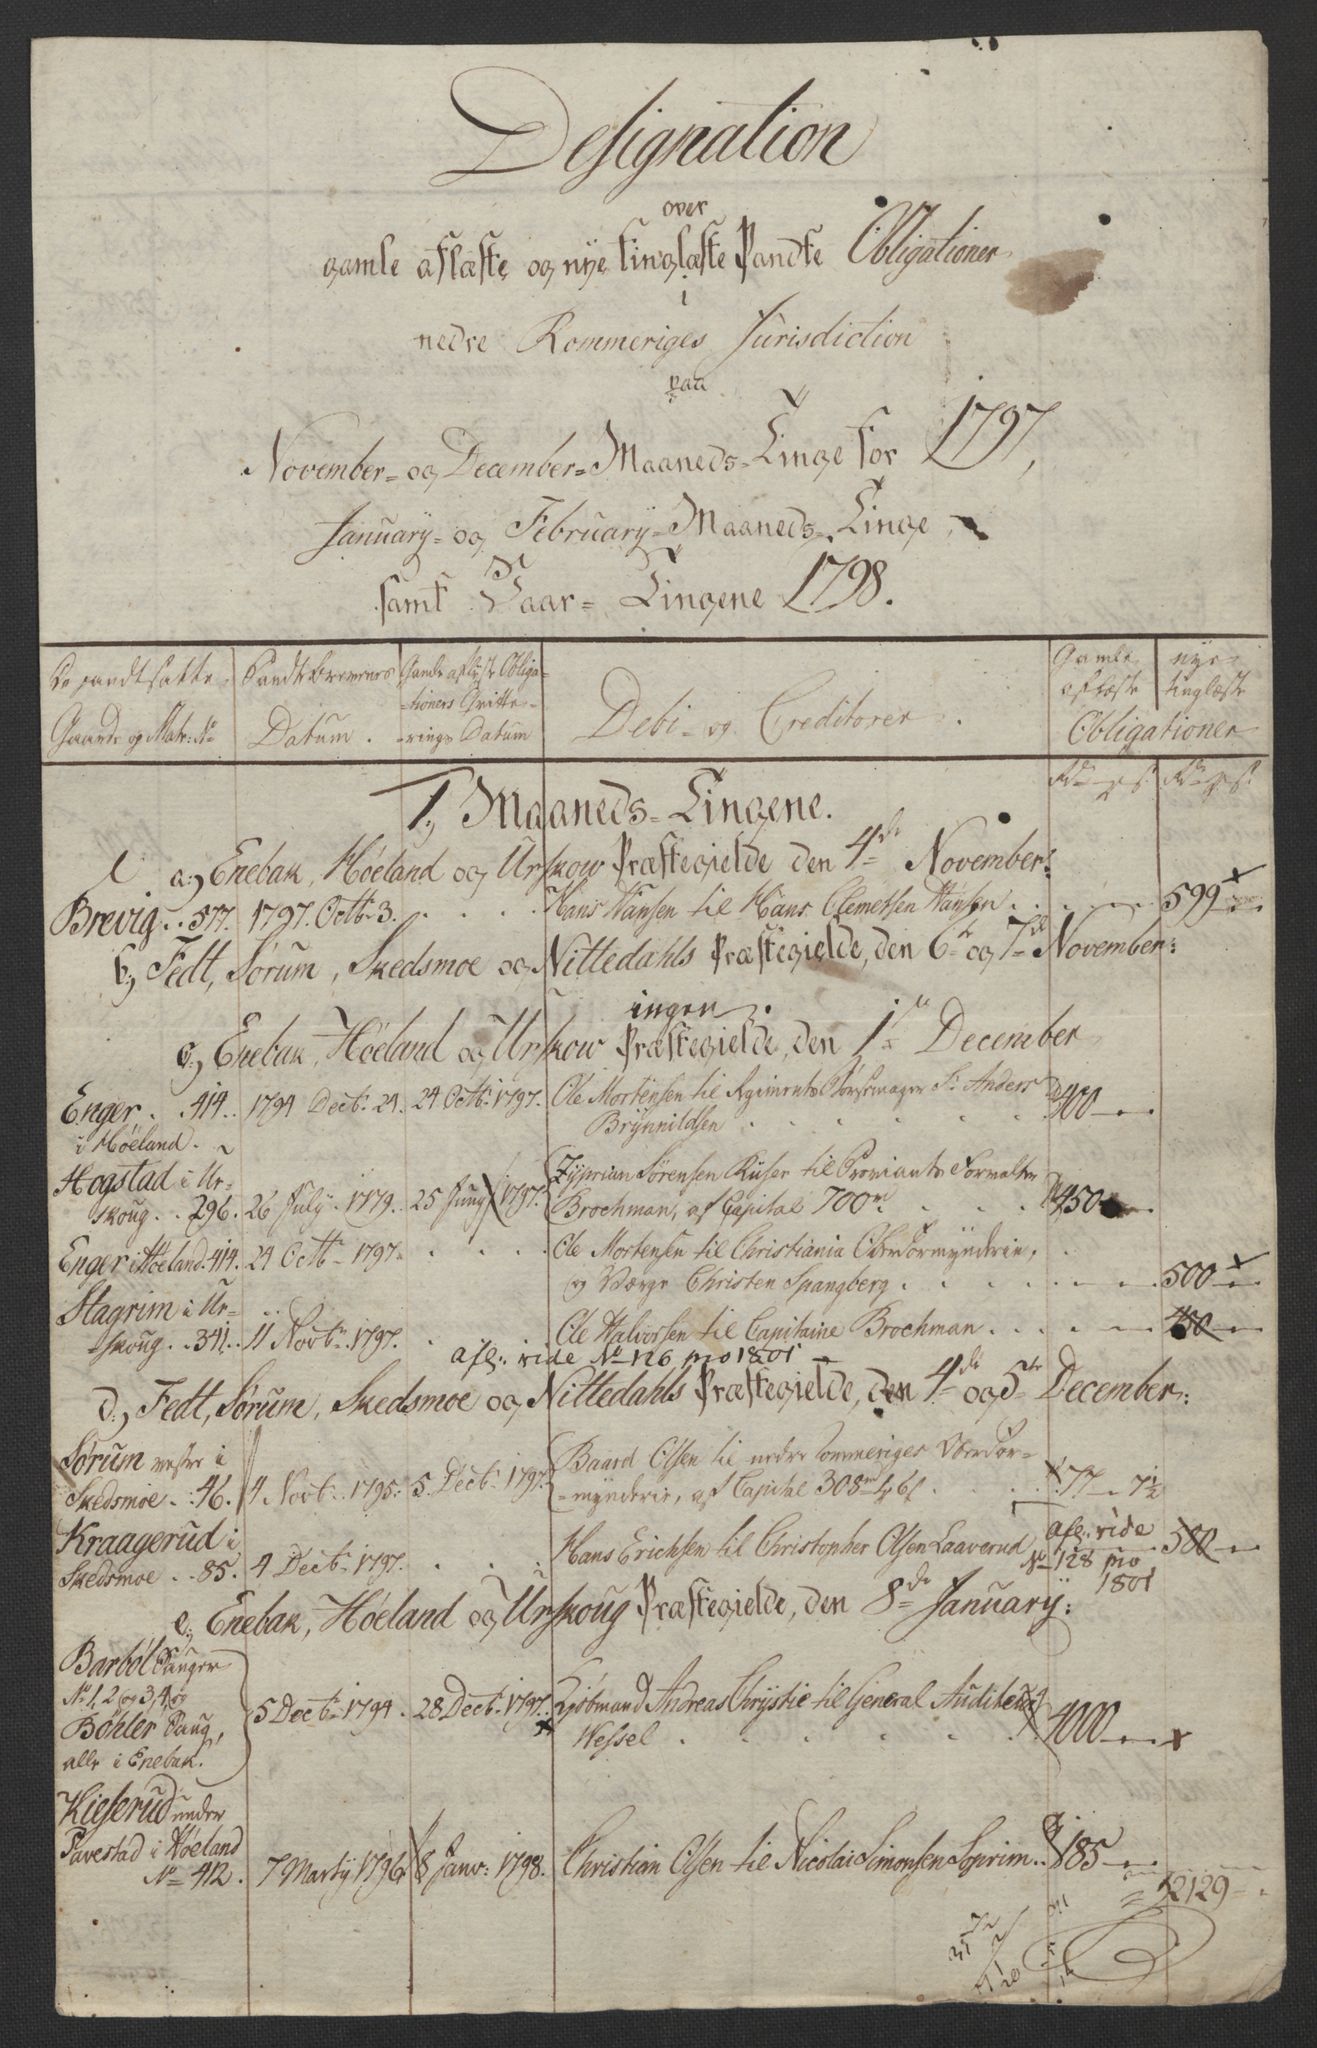 Designation
over
gamle aflæste og nye tinglæste Pandte Obligationer
i
nedre Rommeriges Jurisdiction
paa
November- og December- Maaneds- Tinge for 1797,
January- og February- Maaneds- Tinge,
samt Vaar- Tingene 1798.
De pandtsatte Pandtebrevenes Gamle aflyste Obliga- Gamle nye
-tioners Qvitte- Debi- og Creditorer. aflæste tinglæste
Gaarde og Matr: No Datum. -rings Datum Obligationer
Rdr Rdr
1, Maaneds- Tingene.
a, Enebak, Høeland og Urskow Præstegielde den 4de November:
Brevig . . 577. 1797. Octbr 3. Hans Hansen til Hans Clemetsen Hansen . . 599
b, Fedt, Sørum, Skedsmoe og Nittedahls Præstegielde, den 6te og 7de November:
ingen.
c, Enebak, Høeland og Urskow Præstegielde, den 1te December
Enger . . 414. 1794 Decbr 24. 24 Octbr 1797. Ole Mortensen til Regiments Anders 900
i Høeland. Brynnildsen
Hogstad i Ur- Zyprian Sørensen Kuser til Proviant Forvalter
skoug. . 296. 26 July 1779. 25 Juny 1797. Brochman, af Capital 700 450
Enger i Høeland. 414. 24 Octbr 1797. Ole Mortensen til Christiania Overformynderie,
og Værge Christen Spangberg . . 500
Hagrim i Ur-
skoug . . 341. 11 Novbr 1797. Ole Halvorsen til Capitaine Brochman . . 400
afl: vide No 126 pro 1801
d, Fedt, Sørum, Skedsmoe og Nittedahls Præstegielde, den 4de og 5te December:
Sørum vestre i Baard Olsen til nedre Rommeriges Overfor-
Skedsmoe . . 46. 4 Novbr 1795. 5 Decbr 1797. -mynderie, af Capital 308 77 . 7½
Kraagerud i Hans Erichsen til Christopher Olsen Laaverud afl: vide 500
Skedsmoe . . 85. 4 Decbr 1797. No 128 pro
1801
e, Enebak, Høeland og Urskoug Præstegielde, den 8de January:
Barbøl Pauger
No 1, 2 og 3, 4, og 5 Decbr 1794. 28 Decbr 1797. Kjøbmand Andreas Chrystie til General Auditeur
Bøhler Paug, Wessel 4000
alle i Enebak.
Kieserud under
Tavestad i Høeland
No 412. 7 Marty 1796 8 Janv: 1798. Christian Olsen til Nicolai Simonsen . . 185
12129